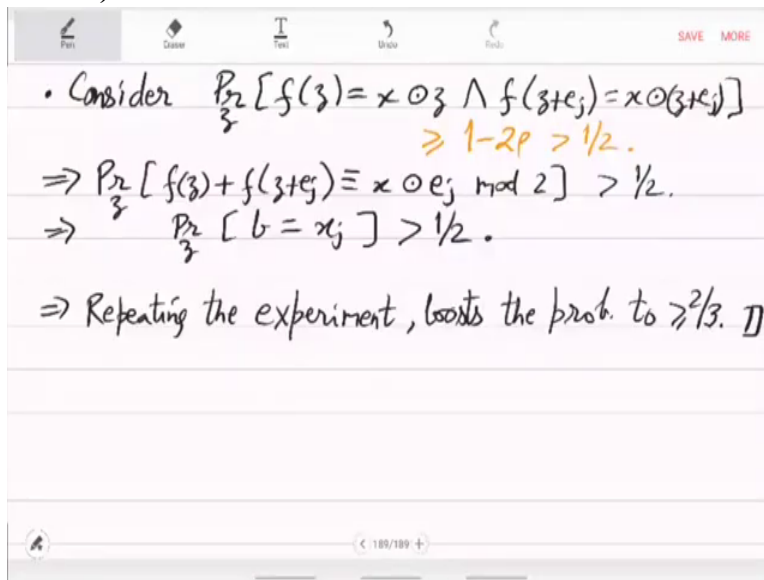 Pen Eraser Text Undo Redo SAVE MORE
• Consider Pr_z [f(z) = x ⊙ z ∧ f(z+e_j) = x⊙(z+e_j)]
≥ 1-2ρ > 1/2.
⇒ Pr_z [f(z) + f(z+e_j) ≡ x ⊙ e_j mod 2] > 1/2.
⇒ Pr_z [b = x_j] > 1/2.
⇒ Repeating the experiment, boosts the prob. to ≥ 2/3. □
< 189/189 +